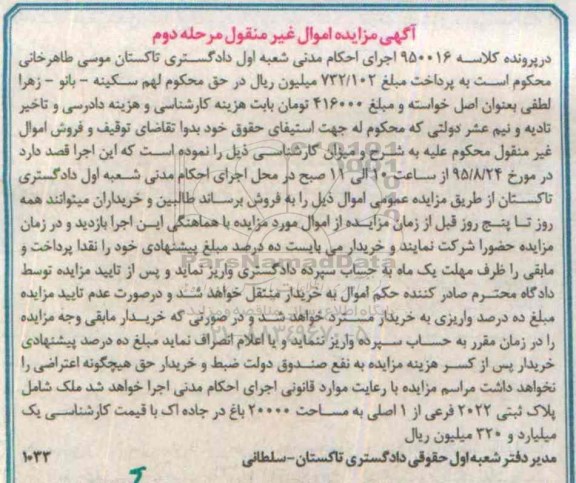 آگهی مزایده اموال غیر منقول مرحله دوم
درپرونده کلاسه ۹۵۰۰۱۶ اجرای احکام مدنی شعبه اول دادگستری تاکستان موسی طاهرخانی
محکوم است به پرداخت مبلغ ۷۳۲/۱۰۲ میلیون ریال در حق محکوم لهم سکینه - بانو - زهرا
لطفی بعنوان اصل خواسته و مبلغ ۴۱۶۰۰۰ تومان بابت هزینه کارشناسی و هزینه دادرسی و تاخیر
تادیه و نیم عشر دولتی که محکوم له جهت استیفای حقوق خود بدوا تقاضای توقیف و فروش اموال
غیر منقول محکوم علیه به شرح و میزان کارشناسی ذیل را نموده است که این اجرا قصد دارد
در مورخ ۹۵/۸/۲۴ از ساعت ۱۰ الی ۱۱ صبح در محل اجرای احکام مدنی شعبه اول دادگستری
تاکستان از طریق مزایده عمومی اموال ذیل را به فروش برساند طالبین و خریداران میتوانند همه
روز تا پنج روز قبل از زمان مزایده از اموال مورد مزایده با هماهنگی این اجرا بازدید و در زمان
مزایده حضورا شرکت نمایند و خریدار می بایست ده درصد مبلغ پیشنهادی خود را نقدا پرداخت و
مابقی را ظرف مهلت یک ماه به حساب سپرده دادگستری واریز نماید و پس از تایید مزایده توسط
دادگاه محترم صادر کننده حکم اموال به خریدار منتقل خواهد شد و درصورت عدم تایید مزایده
مبلغ ده درصد واریزی به خریدار مسترد خواهد شد و در صورتی که خریدار مابقی وجه مزایده
را در زمان مقرر به حساب سپرده واریز ننماید و یا اعلام انصراف نماید مبلغ ده درصد پیشنهادی
خریدار پس از کسر هزینه مزایده به نفع صندوق دولت ضبط و خریدار حق هیچگونه اعتراضی را
نخواهد داشت مراسم مزایده با رعایت موارد قانونی اجرای احکام مدنی اجرا خواهد شد ملک شامل
پلاک ثبتی ۲۰۲۲ فرعی از ۱ اصلی به مساحت ۲۰۰۰۰ باغ در جاده اک با قیمت کارشناسی یک
میلیارد و ۳۲۰ میلیون ریال
مدیر دفتر شعبه اول حقوقی دادگستری تاکستان-سلطانی ۱۰۳۳
ParsNamadData